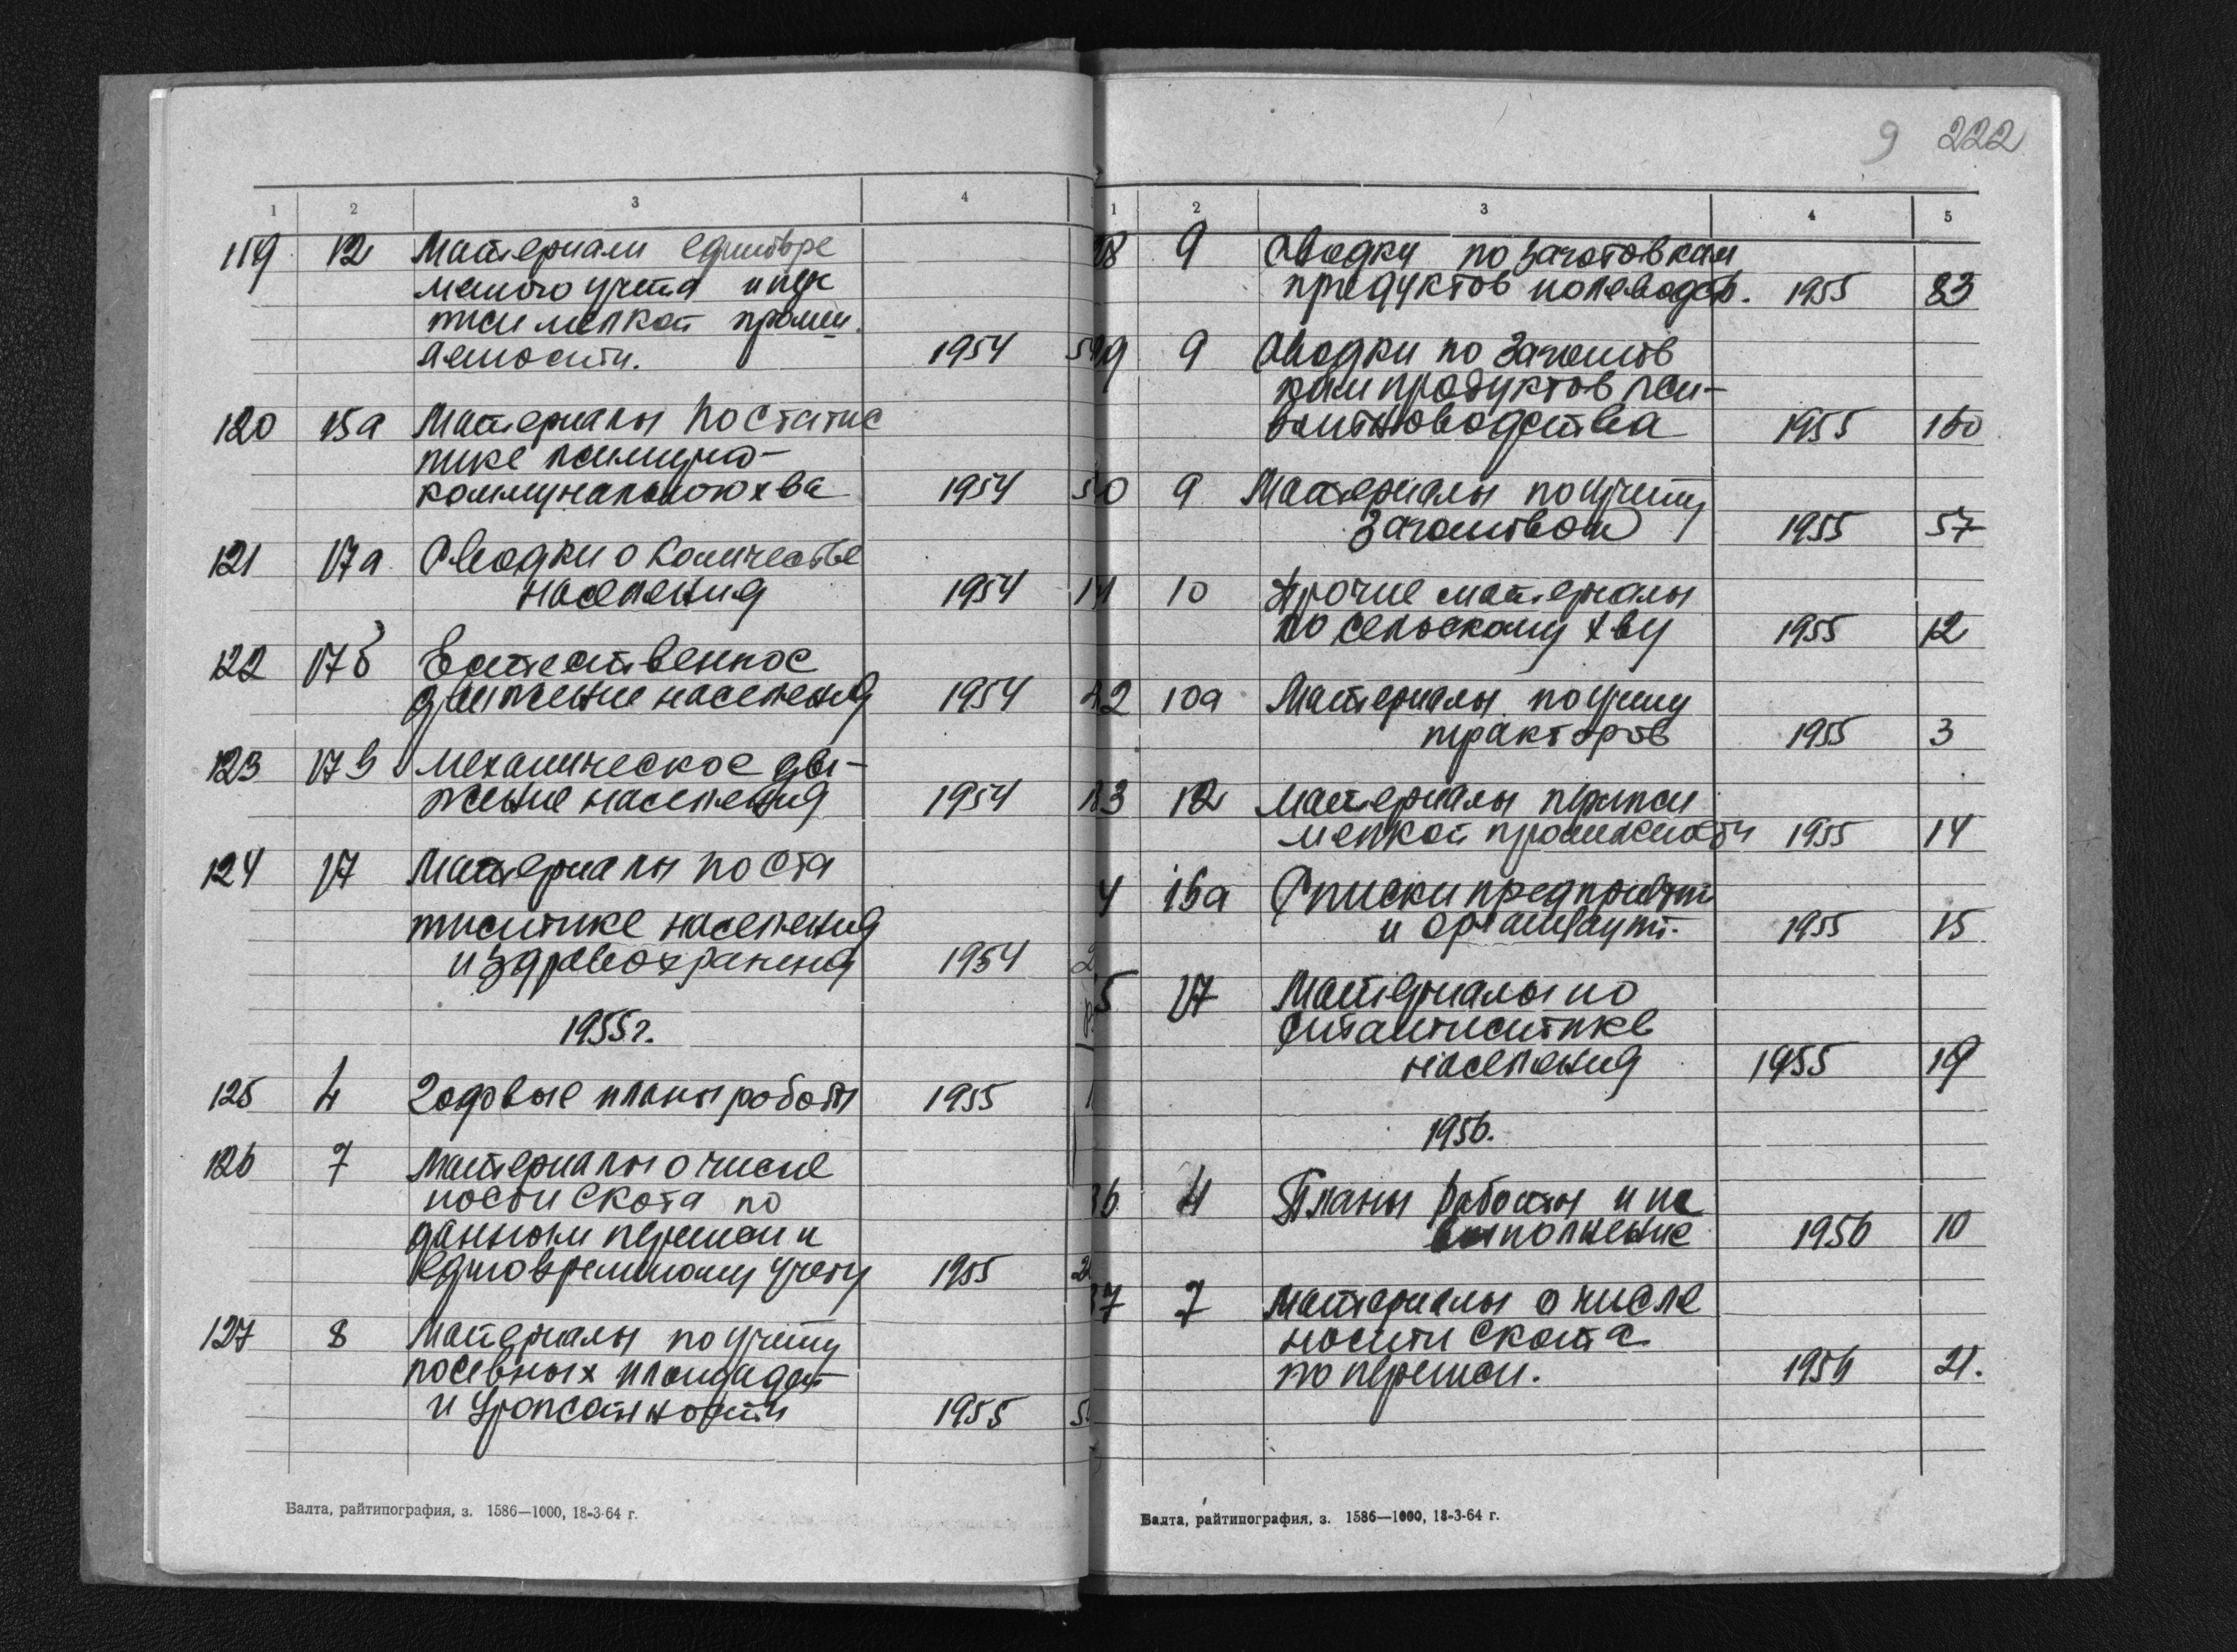 1 2 3 4
119 12 Материалы единовре
менного учета и пере
писи мелкой промыш
ленности. 1954
120 15а Материалы по статис
тике жилищно-
коммунального х-ва 1954
121 17а Сводки о количестве
населения 1954
122 17б Естественное
движение населения 1954
123 17в Механическое дви-
жение населения 1954
124 17 Материалы по ста
тистике населения
и здравоохранения 1954
1955г.
125 4 Годовые планы работы 1955
126 7 Материалы о числе
ности скота по
данным переписи и
единовременному учету 1955
127 8 Материалы по учету
посевных площадей
и урожайности 1955
Балта, райтипография, з. 1586—1000, 18-3-64 г.
9 222
1 2 3 4 5
8 9 Сводки по заготовкам
продуктов полеводств. 1955 83
9 9 Сводки по заготов
кам продуктов жи-
вотноводства 1955 160
0 9 Материалы по учету
заготовок 1955 57
10 Прочие материалы
по сельскому х-ву 1955 12
2 10а Материалы по учету
тракторов 1955 3
3 12 Материалы переписи
мелкой промышленности 1955 14
4 16а Списки предприятий
и организаций. 1955 15
5 17 Материалы по
статистике
населения 1955 19
1956.
36 4 Планы работы и их
выполнение 1956 10
37 7 Материалы о числе
ности скота
по переписи. 1956 21.
Балта, райтипография, з. 1586—1000, 18-3-64 г.